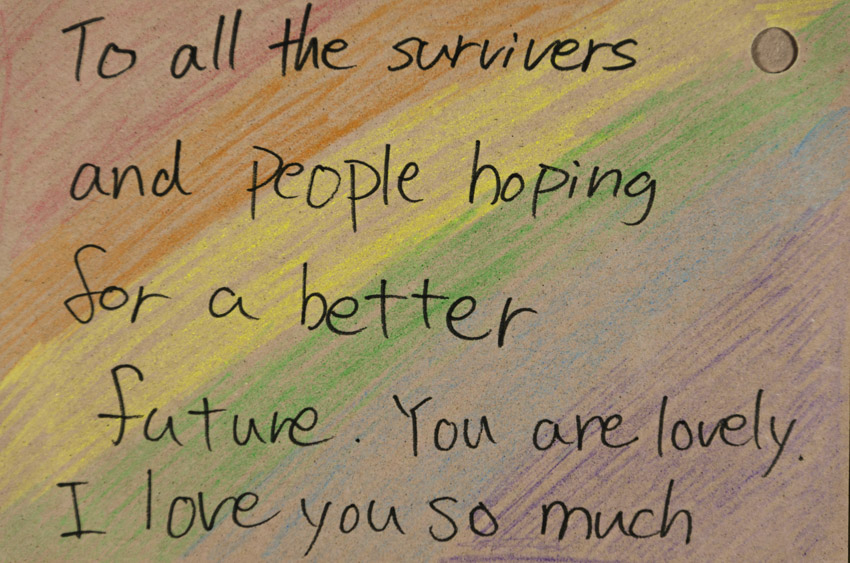 To all the survivers
and people hoping
for a better
future. You are lovely.
I love you so much